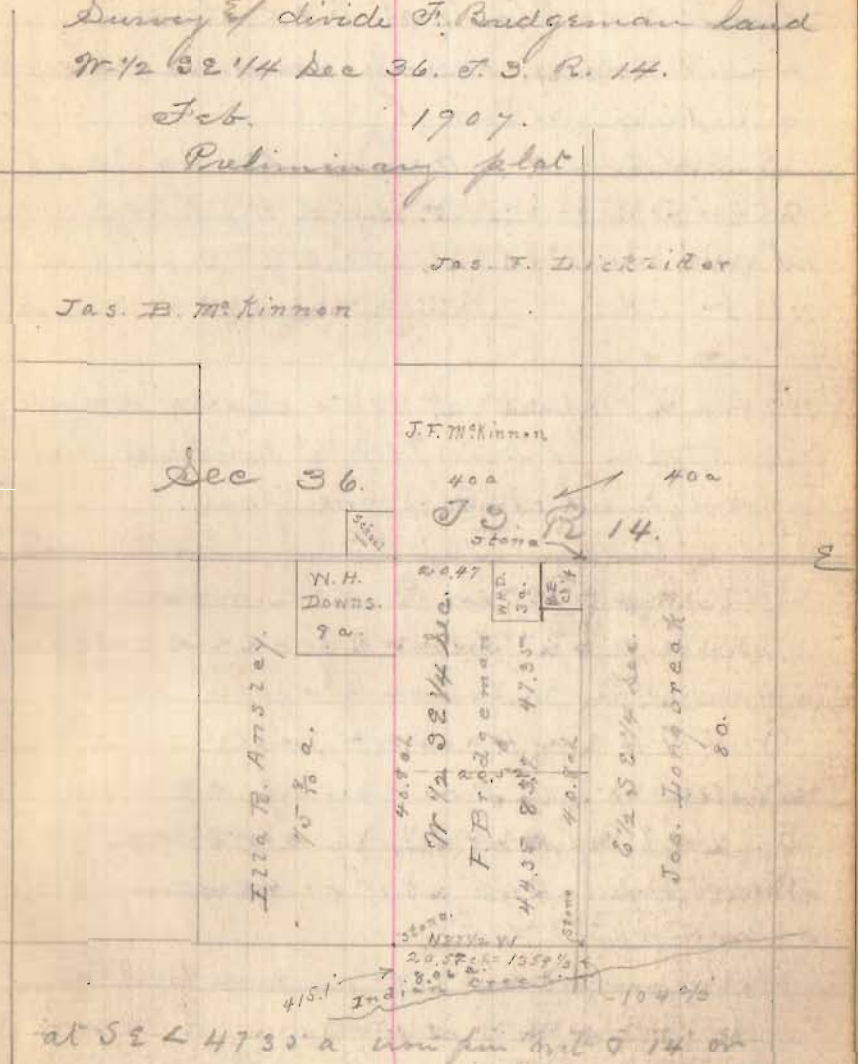 Survey & divide F. Bridgeman land
W 1/2 SE 1/4 Sec 36. T. 3. R. 14.
Feb. 1907.
Preliminary plat
Jas. F. Dickrider
Jas. B. McKinnon
J. F. McKinnon
Sec 36.
40 a
40 a
T 3 R 14.
School
Stone
E
W. H.
Downs.
9 a.
20.47
W.H.D.
3 a.
Ella R. Ansley.
75 8/10 a.
40.8 ch
W 1/2 SE 1/4 Sec.
F Bridgeman
44.35
47.35
40.8 ch
E 1/2 SE 1/4 Sec.
Jas. Longbreak
80.
Stone.
Stone
N 87 1/2 W
20.57 ch = 1359 1/3
415.1
Indian Creek
at SE 47 35 a iron pin